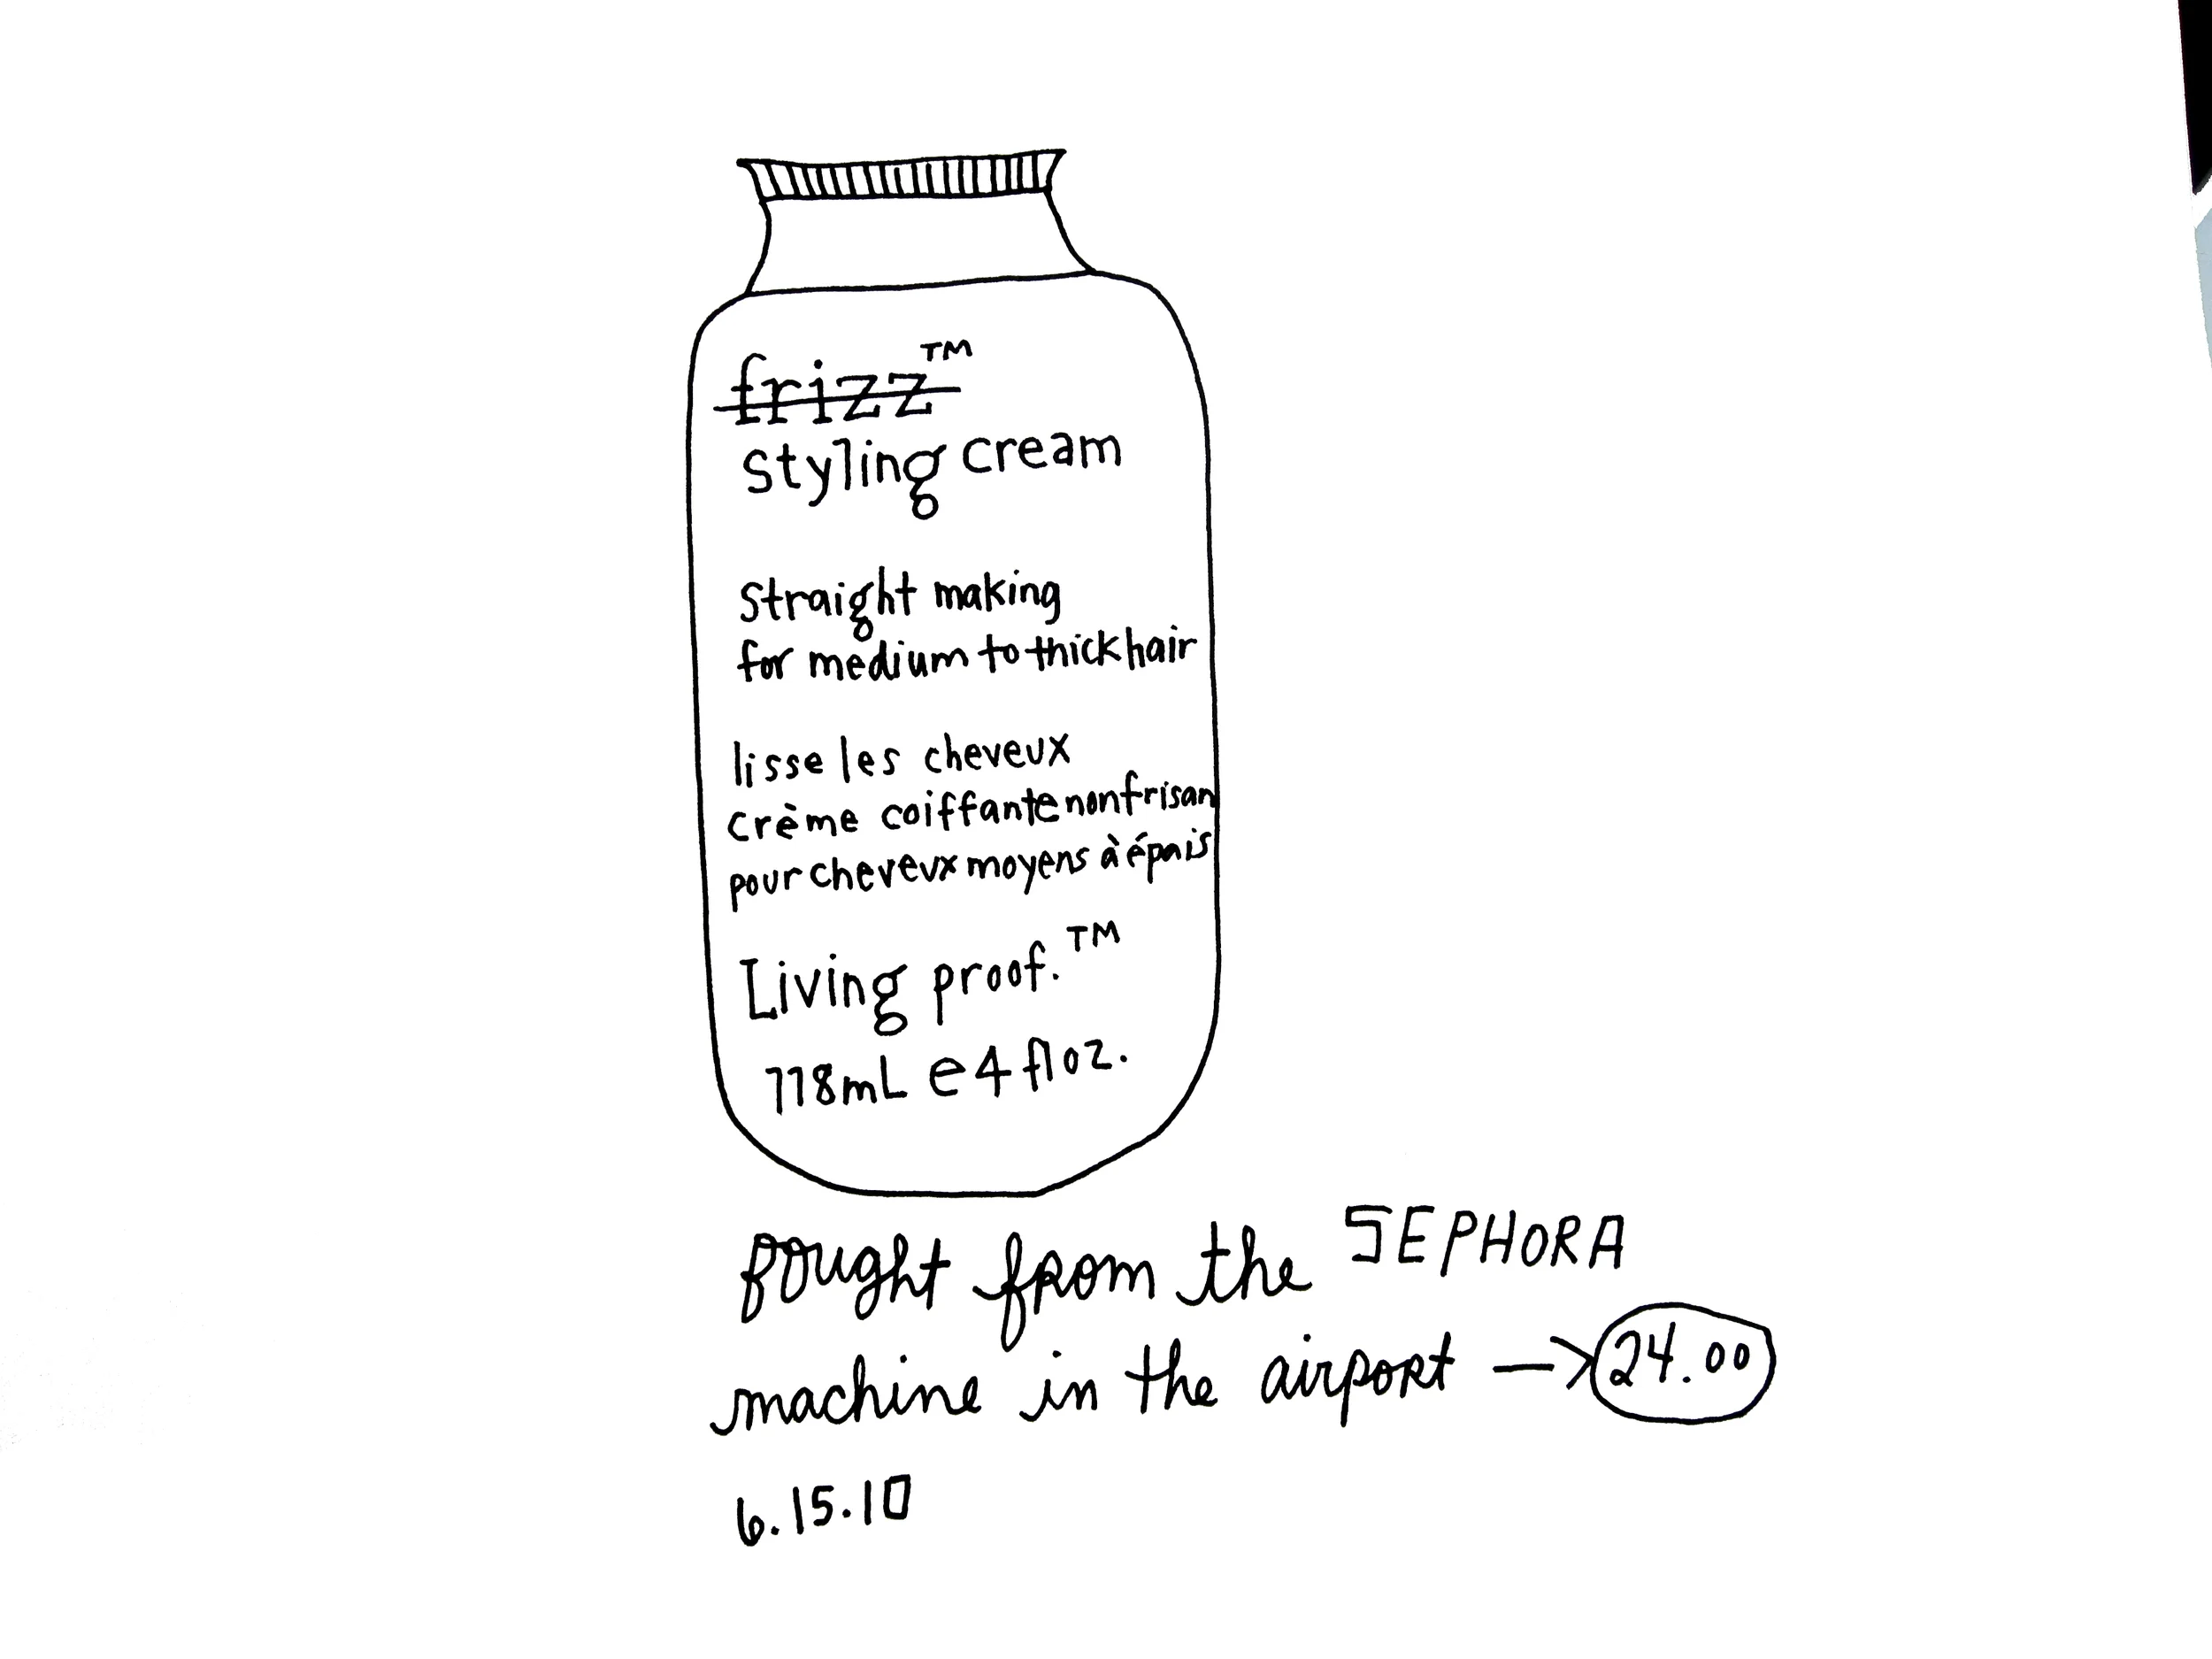 frizz™
styling cream
straight making
for medium to thick hair
lisse les cheveux
crème coiffante nonfrisan
pour cheveux moyens à épais
Living proof.™
118mL e 4 fl oz.
bought from the SEPHORA
machine in the airport → 24.00
6.15.10